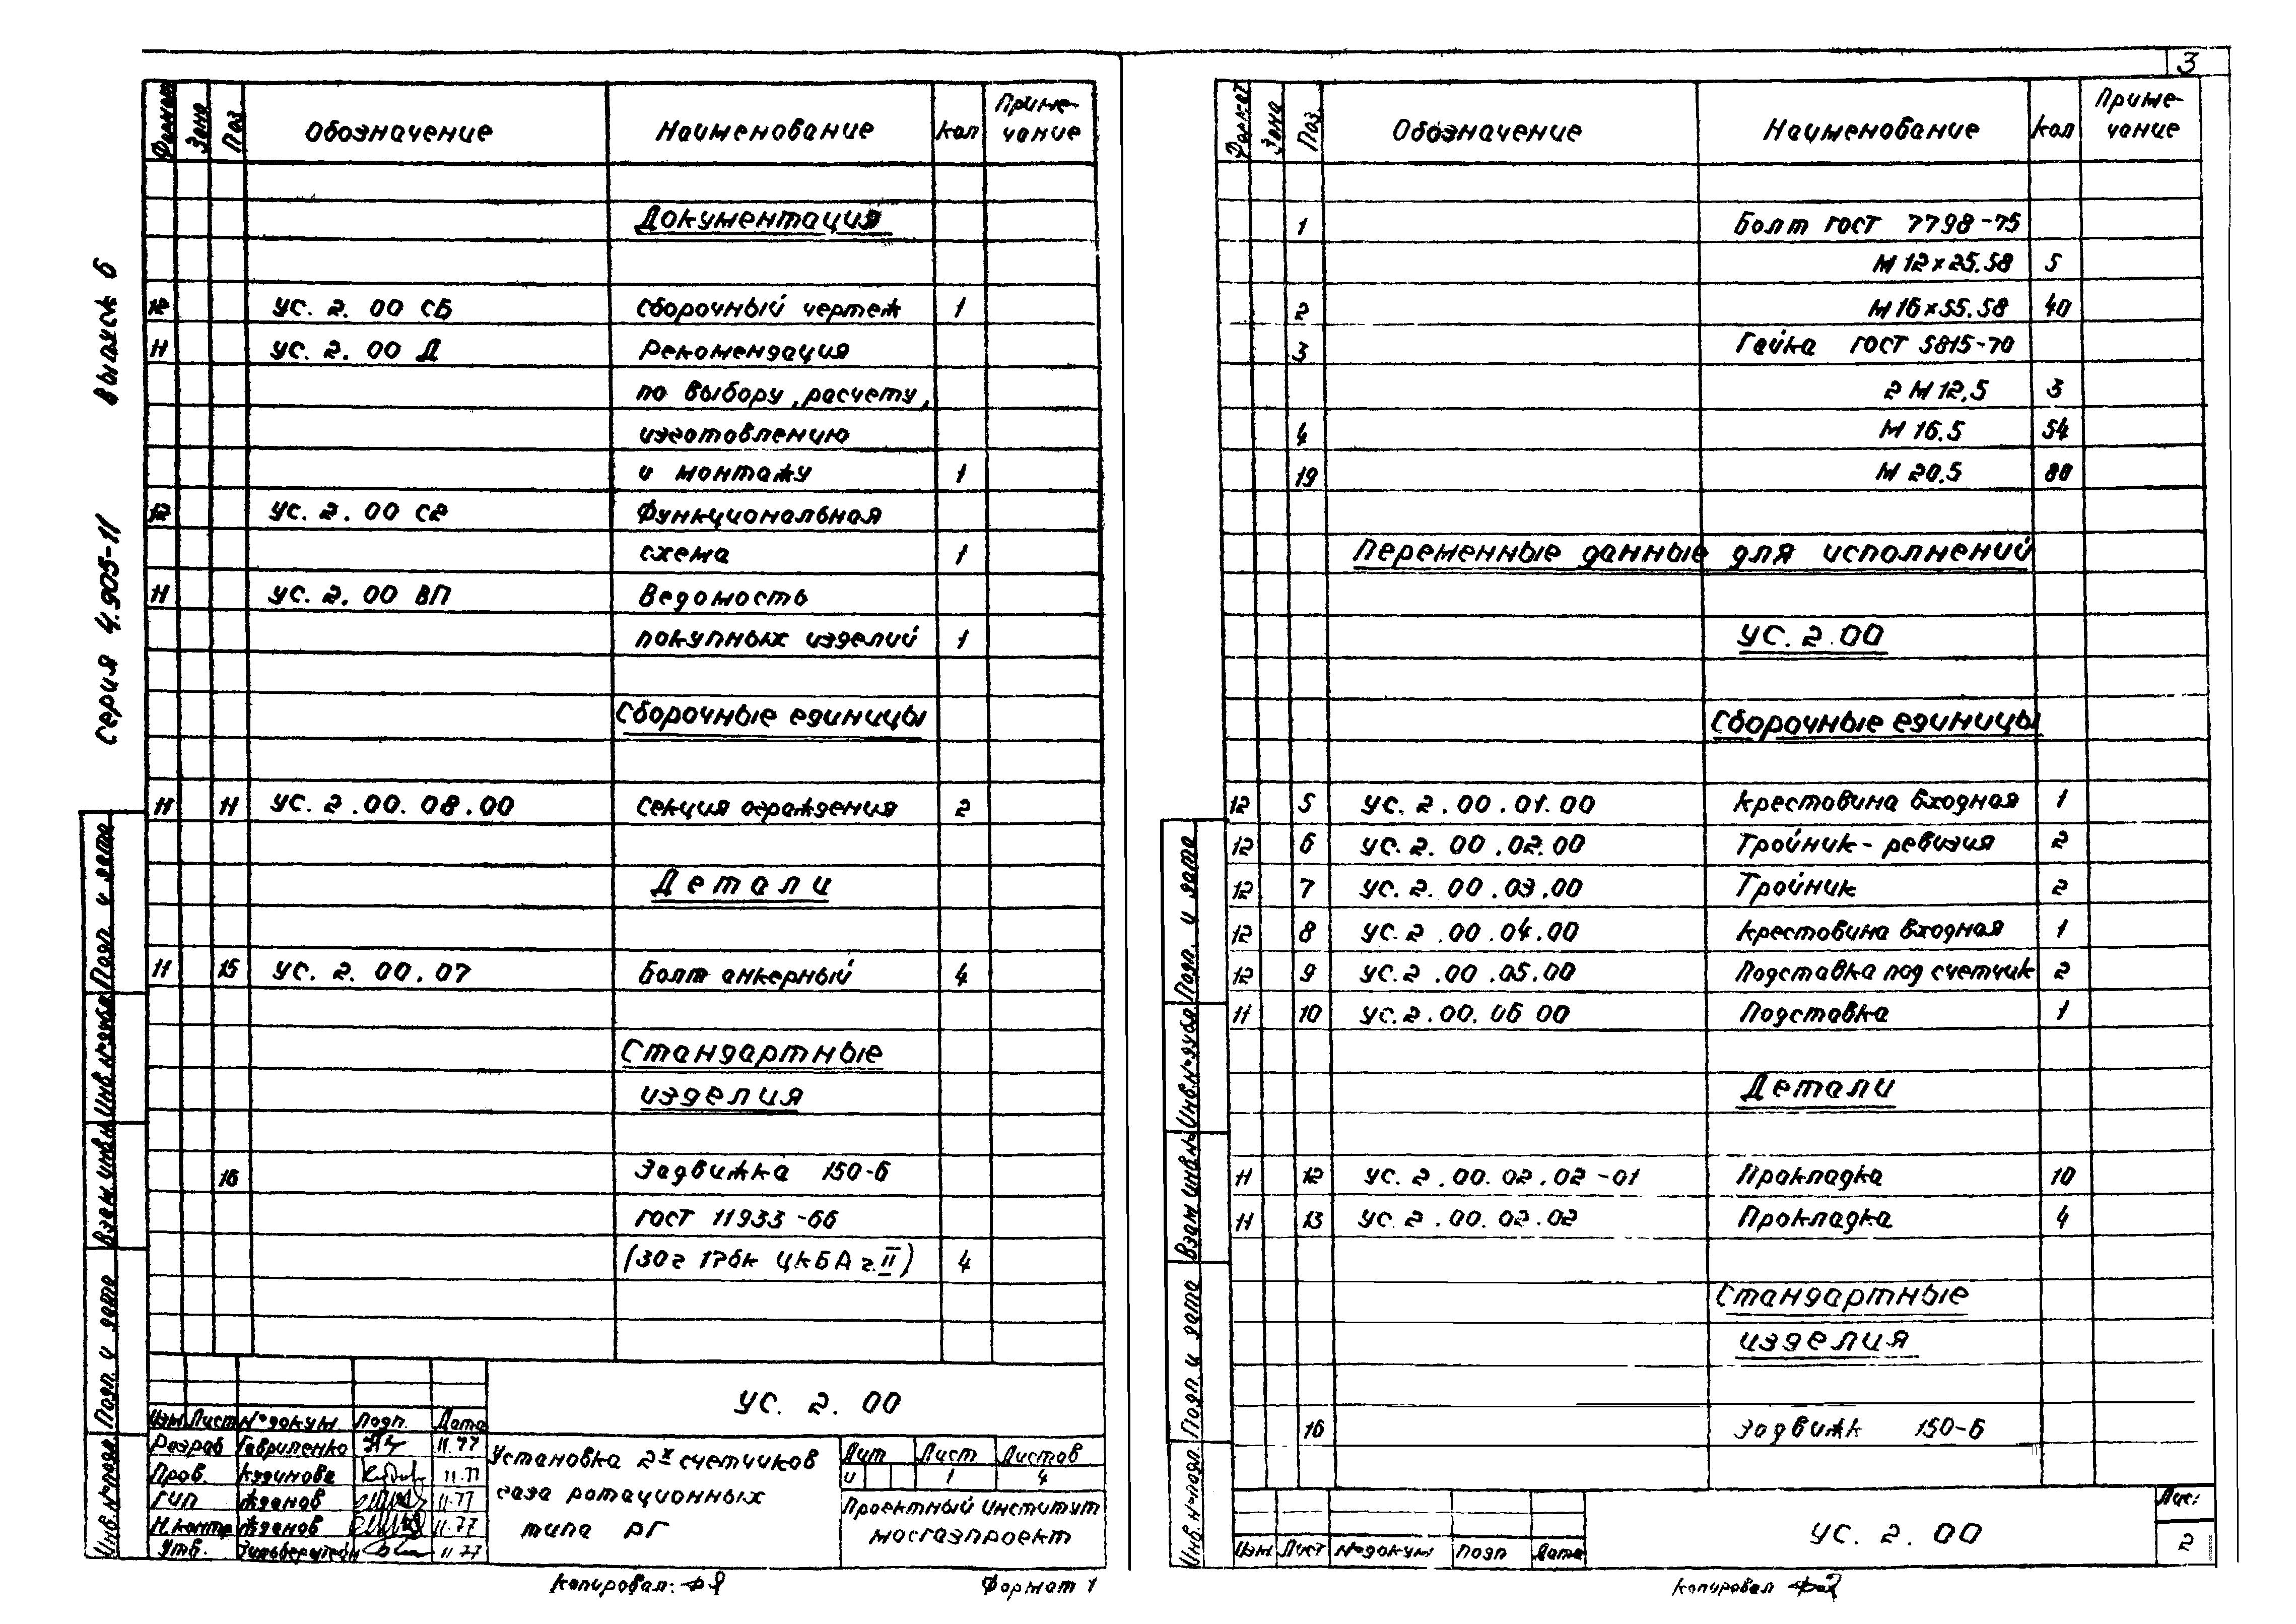 3
серия 4.905-11 выпуск 6
Формат Зона Поз. Обозначение Наименование Кол Приме-
чание
Документация
12 УС. 2. 00 СБ Сборочный чертеж 1
11 УС. 2. 00 Д Рекомендация
по выбору, расчету,
изготовлению
и монтажу 1
12 УС. 2. 00 С2 Функциональная
схема 1
11 УС. 2. 00 ВП Ведомость
покупных изделий 1
Сборочные единицы
11 11 УС. 2. 00. 08. 00 Секция ограждения 2
Детали
11 15 УС. 2. 00. 07 Болт анкерный 4
Стандартные
изделия
16 Задвижка 150-6
ГОСТ 11933-66
(30ч 17бк ЦКБА г.II) 4
УС. 2. 00
Изм Лист № докум. Подп. Дата
Разраб Гавриленко 11.77
Пров. Кудинова 11.77
ГИП Жданов 11.77
Н.контр Жданов 11.77
Утв. Зильберштейн 11.77
Установка 2х счетчиков
газа ротационных
типа РГ
Лит Лист Листов
и 1 4
Проектный институт
Мосгазпроект
Инв.№подл. Подп. и дата Взам.инв.№ Инв.№дубл. Подп. и дата
Копировал: Формат 1
Формат Зона Поз. Обозначение Наименование Кол Приме-
чание
1 Болт ГОСТ 7798-75
М12х25.58 5
2 М16х55.58 40
3 Гайка ГОСТ 5815-70
2М12,5 3
4 М16.5 54
19 М20.5 80
Переменные данные для исполнений
УС. 2.00
Сборочные единицы
12 5 УС. 2. 00. 01. 00 Крестовина входная 1
12 6 УС. 2. 00. 02. 00 Тройник-ревизия 2
12 7 УС. 2. 00. 03. 00 Тройник 2
12 8 УС. 2. 00. 04. 00 Крестовина входная 1
12 9 УС. 2. 00. 05. 00 Подставка под счетчик 2
11 10 УС. 2. 00. 06 00 Подставка 1
Детали
11 12 УС. 2. 00. 02. 02-01 Прокладка 10
11 13 УС. 2. 00. 02. 02 Прокладка 4
Стандартные
изделия
16 Задвижк 150-6
Изм Лист № докум Подп Дата
УС. 2. 00
Лис:
2
Инв.№подл. Подп и дата Взам инв№ Инв.№дубл. Подп. и дата
Копировал